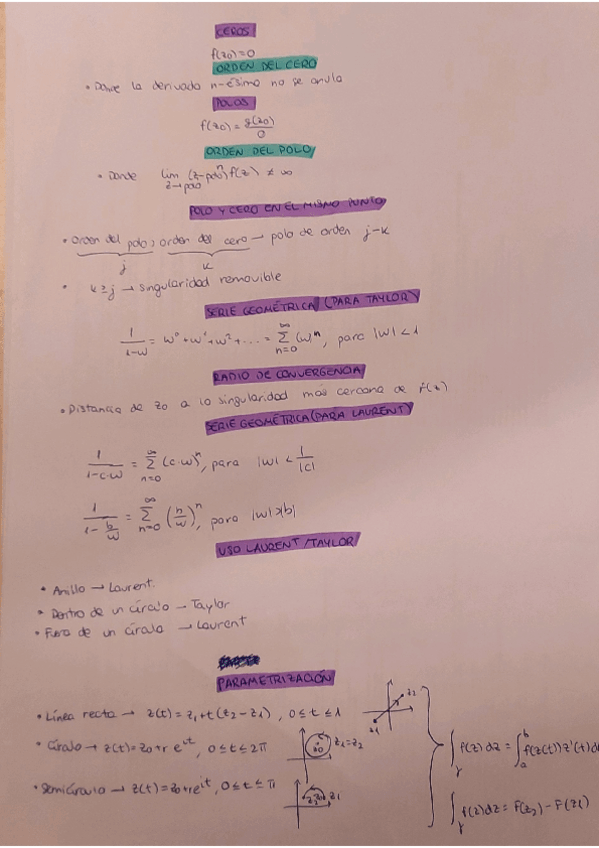 CEROS
f(z0)=0
ORDEN DEL CERO
• Donde la derivada n-ésima no se anula
POLOS
f(z0) = g(z0)/0
ORDEN DEL POLO
• Donde lim z→polo (z-polo)^n f(z) ≠ ∞
POLO Y CERO EN EL MISMO PUNTO
• Orden del polo > orden del cero → polo de orden j-k
j k
• k≥j → singularidad removible
SERIE GEOMÉTRICA (PARA TAYLOR)
1/(1-w) = w^0+w^1+w^2+... = ∑_{n=0}^{∞} (w)^n, para |w|<1
RADIO DE CONVERGENCIA
• Distancia de z0 a la singularidad más cercana de f(z)
SERIE GEOMÉTRICA (PARA LAURENT)
1/(1-c·w) = ∑_{n=0}^{∞} (c·w)^n, para |w| < 1/|c|
1/(1-b/w) = ∑_{n=0}^{∞} (b/w)^n, para |w|>|b|
USO LAURENT/TAYLOR
• Anillo → Laurent.
• Dentro de un círculo → Taylor
• Fuera de un círculo → Laurent
PARAMETRIZACIÓN
• Línea recta → z(t) = z1+t(z2-z1), 0≤t≤1 z1 z2
• Círculo → z(t)=z0+r e^{it}, 0≤t≤2π z0 z1=z2
∫_γ f(z)dz = ∫_a^b f(z(t))z'(t)d
• Semicírculo → z(t)=z0+re^{it}, 0≤t≤π z2 z0 z1
∫_γ f(z)dz = F(z2)-F(z1)